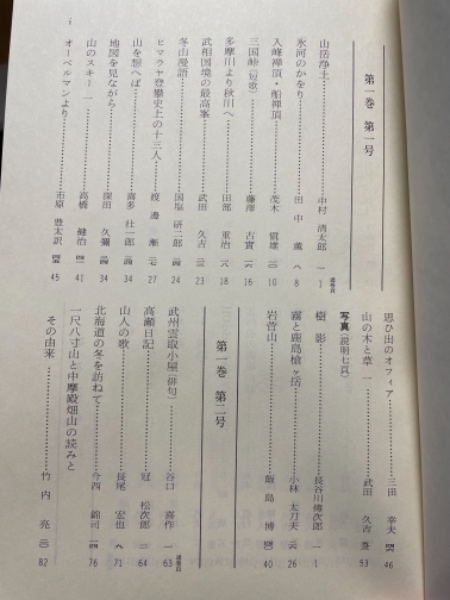 i
第一巻 第一号
山岳浄土……中村 清太郎 一 1 通巻頁
氷河のかをり……田中 薫 八 8
入峰禅頂・船禅頂……茂木 慎雄 一〇 10
三国峠(短歌)……藤澤 古實 一六 16
多摩川より秋川へ……田部 重治 一八 18
武相国境の最高峯……武田 久吉 二三 23
冬山漫語……国塩 研二郎 二四 24
ヒマラヤ登攀史上の十三人……渡邊 漸 二七 27
山を想へば……喜多 壮一郎 三四 34
地図を見ながら……窪田 久彌 三四 34
山のスキー 一……高橋 健治 四一 41
オーベルマンより……市原 豊太訳 四五 45
思ひ出のオフィア……三田 幸夫 四六 46
山の木と草 一……武田 久吉 五三 53
写真(説明七頁)
樹影……長谷川傳次郎 一 1
霧と鹿島槍ヶ岳……小林 太刀夫 二六 26
岩菅山……飯島 博 四〇 40
第一巻 第二号
武州雲取小屋(俳句)……谷口 喜作 一 63 通巻頁
高瀬日記……冠 松次郎 二 64
山人の歌……長尾 宏也 八 71
北海道の冬を訪ねて……今西 錦司 一四 76
一尺八寸山と中摩殿畑山の読みと
その由来……竹内 亮 二〇 82